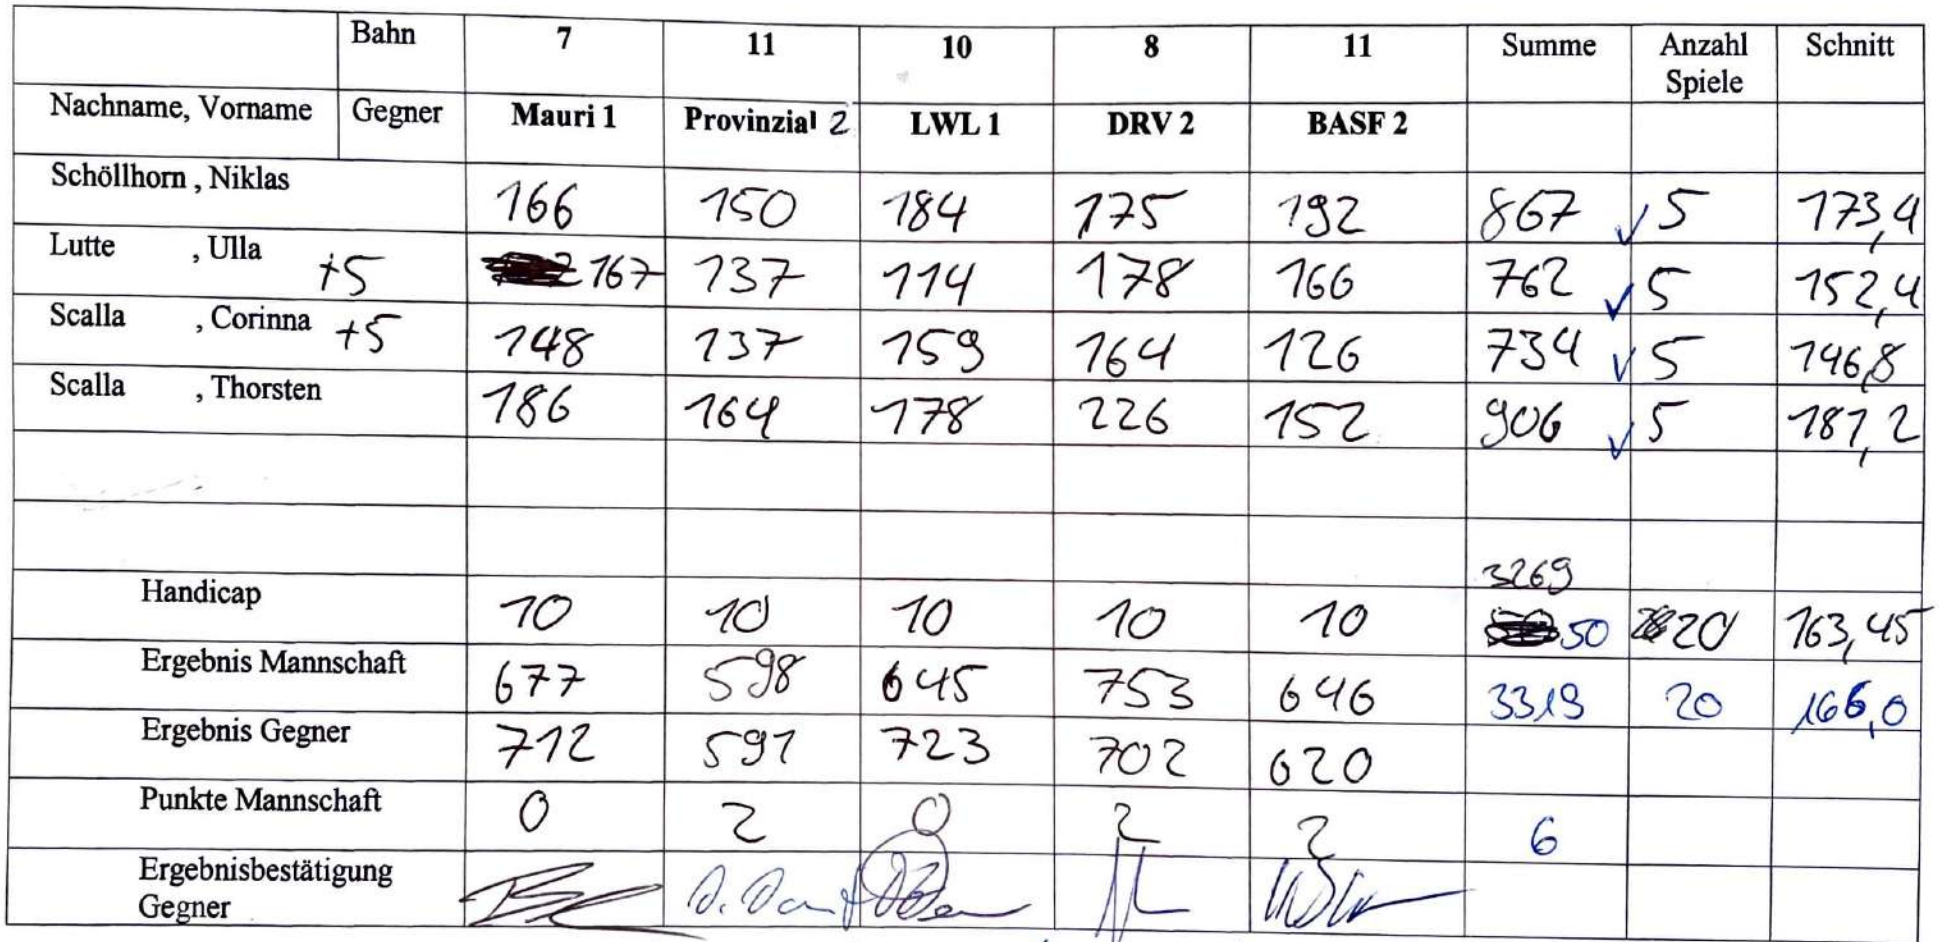 Bahn 7 11 10 8 11 Summe Anzahl Spiele Schnitt
Nachname, Vorname Gegner Mauri 1 Provinzial 2 LWL 1 DRV 2 BASF 2
Schöllhorn , Niklas 166 150 184 175 192 867 ✓ 5 173,4
Lutte , Ulla +5 167 137 114 178 166 762 ✓ 5 152,4
Scalla , Corinna +5 148 137 159 164 126 734 ✓ 5 146,8
Scalla , Thorsten 186 164 178 226 152 906 ✓ 5 181,2
3269
Handicap 10 10 10 10 10 50 20 163,45
Ergebnis Mannschaft 677 598 645 753 646 3319 20 166,0
Ergebnis Gegner 712 591 723 702 620
Punkte Mannschaft 0 2 0 2 2 6
Ergebnisbestätigung
Gegner